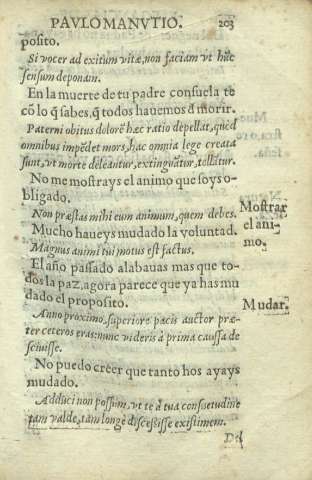 PAVLO MANVTIO. 203
posito.
Si vocer ad exitum vitæ, non faciam vt hũc
sensum deponam.
En la muerte de tu padre consuela te
cõ lo q̃ sabes, q̃ todos hauemos đ morir.
Paterni obitus dolorẽ hæc ratio depellat, quòd
omnibus impẽdet mors, hæc omnia lege creata
sunt, vt morte deleãtur, extinguãtur, tollãtur.
No me mostrays el animo que soys o-
bligado.
Non præstas mihi eum animum, quem debes.
Mostrar
el ani-
mo.
Mucho haueys mudado la voluntad.
Magnus animi tui motus est factus.
El año passado alabauas mas que to-
dos la paz, agora parece que ya has mu
dado el proposito.
Mudar.
Anno proximo, superiore pacis auctor præ-
ter ceteros eras: nunc videris à prima caussa de
sciuisse.
No puedo creer que tanto hos ayays
mudado.
Adduci non possum, vt te à tua consuetudine
tam valde, tam longè discessisse existimem.